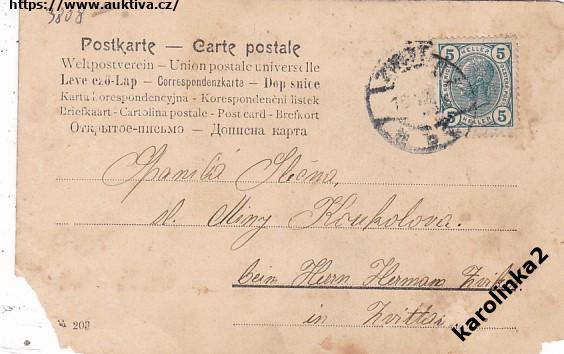 https://www.auktiva.cz/
3808
Postkarte — Carte postale
Weltpostverein - Union postale universelle
Leve ezö-Lap — Correspondenzkarte — Dop snice
Karta korespondencyjna - Korespondenční lístek
Briefkaart - Cartolina postale - Post card - Brefkort
Открытое-письмо — Дописна карта
5 HELLER 5
5 HELLER 5
Slečna,
sl. Miny Koukolova.
beim Herrn Hermann
in
203
karolinka2